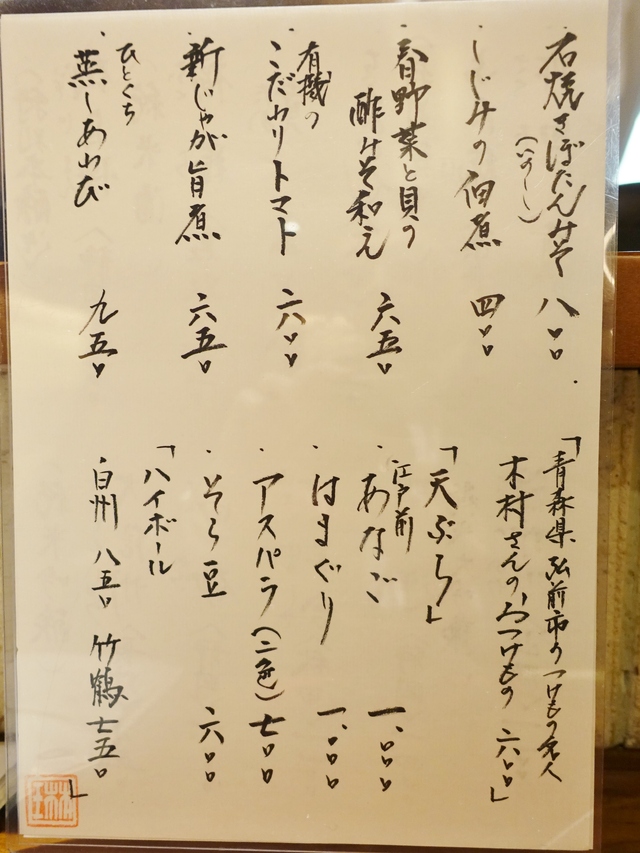 ・石焼きぼたんみそ 八〇〇
(いのしし)
・しじみの佃煮 四〇〇
・春野菜と貝の
酢みそ和え 六五〇
・有機の
こだわりトマト 六〇〇
・新じゃが旨煮 六五〇
・ひとくち
蒸しあわび 九五〇
「青森県弘前市のつけもの名人
木村さんの、おつけもの 六〇〇」
「天ぷら」
・江戸前
あなご 一、〇〇〇
・はまぐり 一、〇〇〇
・アスパラ(二色) 七〇〇
・そら豆 六〇〇
「ハイボール
白州 八五〇 竹鶴 七五〇」